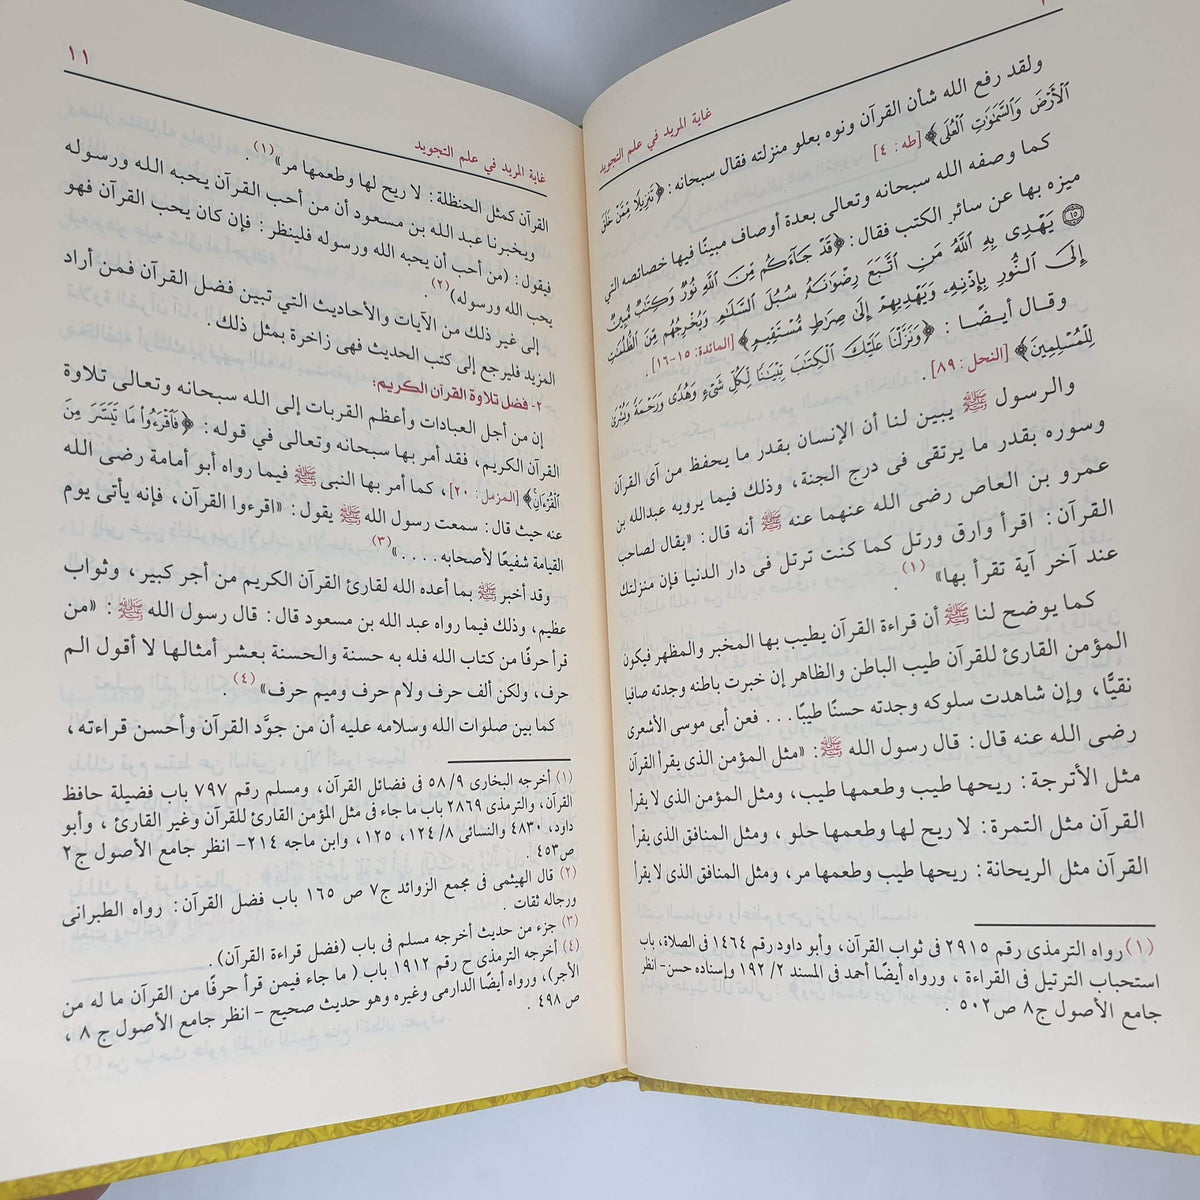 غاية المريد في علم التجويد
ولقد رفع الله شأن القرآن ونوه بعلو منزلته فقال سبحانه: ﴿تَنزِيلًا مِّمَّنْ خَلَقَ
ٱلْأَرْضَ وَٱلسَّمَٰوَٰتِ ٱلْعُلَى﴾ [طه: ٤]
كما وصفه الله سبحانه وتعالى بعدة أوصاف مبينًا فيها خصائصه التي
ميزه بها عن سائر الكتب فقال: ﴿قَدْ جَآءَكُم مِّنَ ٱللَّهِ نُورٌ وَكِتَٰبٌ مُّبِينٌ
۝١٥ يَهْدِى بِهِ ٱللَّهُ مَنِ ٱتَّبَعَ رِضْوَٰنَهُۥ سُبُلَ ٱلسَّلَٰمِ وَيُخْرِجُهُم مِّنَ ٱلظُّلُمَٰتِ
إِلَى ٱلنُّورِ بِإِذْنِهِۦ وَيَهْدِيهِمْ إِلَىٰ صِرَٰطٍ مُّسْتَقِيمٍ﴾ [المائدة: ١٥-١٦].
وقال أيضًا: ﴿وَنَزَّلْنَا عَلَيْكَ ٱلْكِتَٰبَ تِبْيَٰنًا لِّكُلِّ شَىْءٍ وَهُدًى وَرَحْمَةً وَبُشْرَىٰ
لِلْمُسْلِمِينَ﴾ [النحل: ٨٩].
والرسول ﷺ يبين لنا أن الإنسان بقدر ما يحفظ من آى القرآن
وسوره بقدر ما يرتقى فى درج الجنة، وذلك فيما يرويه عبدالله بن
عمرو بن العاص رضى الله عنهما عنه ﷺ أنه قال: «يقال لصاحب
القرآن: اقرأ وارق ورتل كما كنت ترتل فى دار الدنيا فإن منزلتك
عند آخر آية تقرأ بها» (١).
كما يوضح لنا ﷺ أن قراءة القرآن يطيب بها المخبر والمظهر فيكون
المؤمن القارئ للقرآن طيب الباطن والظاهر إن خبرت باطنه وجدته صافيا
نقيًّا، وإن شاهدت سلوكه وجدته حسنًا طيبًا... فعن أبى موسى الأشعرى
رضى الله عنه قال: قال رسول الله ﷺ: «مثل المؤمن الذى يقرأ القرآن
مثل الأترجة: ريحها طيب وطعمها طيب، ومثل المؤمن الذى لا يقرأ
القرآن مثل التمرة: لا ريح لها وطعمها حلو، ومثل المنافق الذى يقرأ
القرآن مثل الريحانة: ريحها طيب وطعمها مر، ومثل المنافق الذى لا يقرأ
(١) رواه الترمذى رقم ٢٩١٥ فى ثواب القرآن، وأبو داود رقم ١٤٦٤ فى الصلاة، باب
استحباب الترتيل فى القراءة، ورواه أيضًا أحمد فى المسند ١٩٢/٢ وإسناده حسن- انظر
جامع الأصول ج٨ ص٥٠٢.
١١
غاية المريد في علم التجويد
القرآن كمثل الحنظلة: لا ريح لها وطعمها مر» (١).
ويخبرنا عبد الله بن مسعود أن من أحب القرآن يحبه الله ورسوله
فيقول: (من أحب أن يحبه الله ورسوله فلينظر: فإن كان يحب القرآن فهو
يحب الله ورسوله) (٢).
إلى غير ذلك من الآيات والأحاديث التي تبين فضل القرآن فمن أراد
المزيد فليرجع إلى كتب الحديث فهى زاخرة بمثل ذلك.
٢- فضل تلاوة القرآن الكريم:
إن من أجل العبادات وأعظم القربات إلى الله سبحانه وتعالى تلاوة
القرآن الكريم، فقد أمر بها سبحانه وتعالى في قوله: ﴿فَٱقْرَءُوا۟ مَا تَيَسَّرَ مِنَ
ٱلْقُرْءَانِ﴾ [المزمل: ٢٠]، كما أمر بها النبى ﷺ فيما رواه أبو أمامة رضى الله
عنه حيث قال: سمعت رسول الله ﷺ يقول: «اقرءوا القرآن، فإنه يأتى يوم
القيامة شفيعًا لأصحابه .....» (٣)
وقد أخبر ﷺ بما أعده الله لقارئ القرآن الكريم من أجر كبير، وثواب
عظيم، وذلك فيما رواه عبد الله بن مسعود قال: قال رسول الله ﷺ: «من
قرأ حرفًا من كتاب الله فله به حسنة والحسنة بعشر أمثالها لا أقول الم
حرف، ولكن ألف حرف ولام حرف وميم حرف» (٤).
كما بين صلوات الله وسلامه عليه أن من جوَّد القرآن وأحسن قراءته،
(١) أخرجه البخارى ٥٨/٩ فى فضائل القرآن، ومسلم رقم ٧٩٧ باب فضيلة حافظ
القرآن، والترمذى ٢٨٦٩ باب ما جاء فى مثل المؤمن القارئ للقرآن وغير القارئ، وأبو
داود، ٤٨٣٠ والنسائى ١٢٤/٨، ١٢٥، وابن ماجه ٢١٤- انظر جامع الأصول ج٢
ص٤٥٣.
(٢) قال الهيثمى فى مجمع الزوائد ج٧ ص ١٦٥ باب فضل القرآن: رواه الطبرانى
ورجاله ثقات.
(٣) جزء من حديث أخرجه مسلم فى باب (فضل قراءة القرآن).
(٤) أخرجه الترمذى ح رقم ١٩١٢ باب (ما جاء فيمن قرأ حرفًا من القرآن ما له من
الأجر)، ورواه أيضًا الدارمى وغيره وهو حديث صحيح - انظر جامع الأصول ج ٨،
ص ٤٩٨.